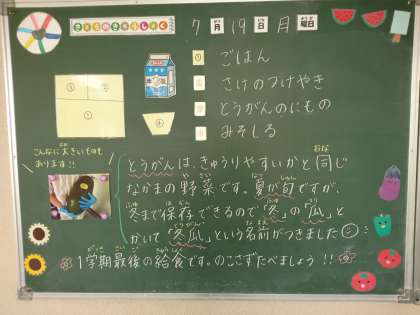 きょうのきゅうしょく
7月19日月曜日
① ごはん
② さけのつけやき
③ とうがんのにもの
④ みそしる
こんなに大きいものも
あります!!
とうがんは、きゅうりやすいかと同じ
なかまの野菜です。夏が旬ですが、
冬まで保存できるので「冬」の「瓜」と
かいて「冬瓜」という名前がつきました
1学期最後の給食です。のこさずたべましょう!!